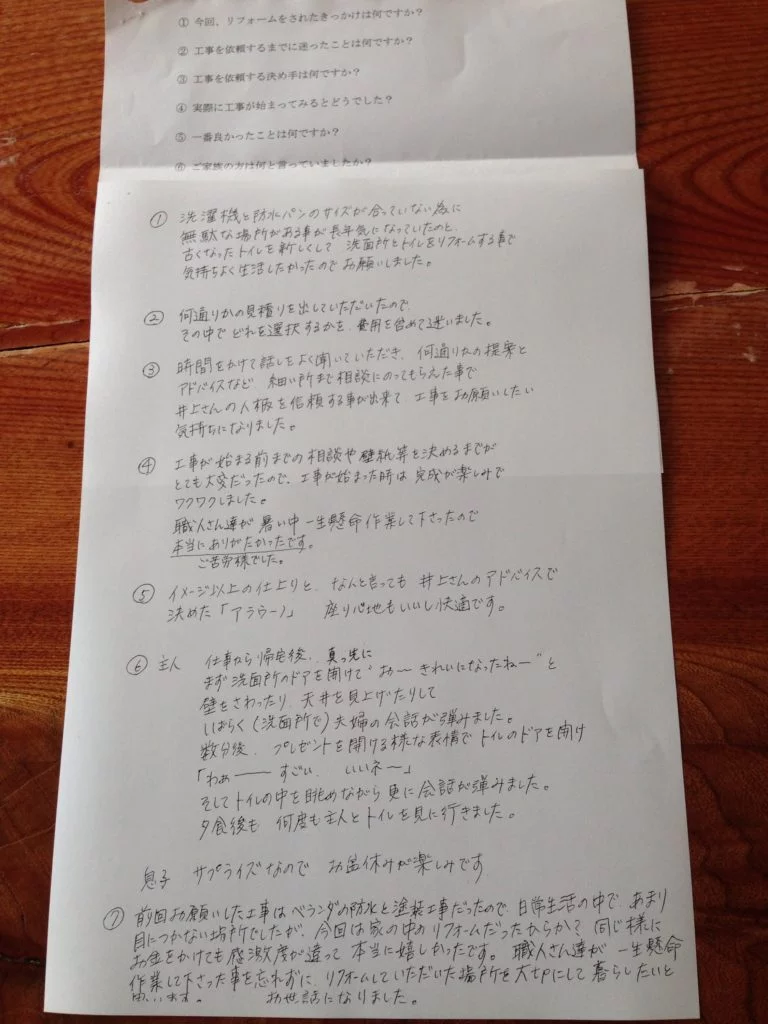 ① 今回、リフォームをされたきっかけは何ですか？
② 工事を依頼するまでに迷ったことは何ですか？
③ 工事を依頼する決め手は何ですか？
④ 実際に工事が始まってみるとどうでした？
⑤ 一番良かったことは何ですか？
⑥ ご家族の方は何と言っていましたか？
① 洗濯機と防水パンのサイズが合っていない為に
無駄な場所がある事が長年気になっていたのと、
古くなったトイレを新しくして 洗面所とトイレをリフォームする事で
気持ちよく生活したかったのでお願いしました。
② 何通りかの見積りを出していただいたので、
その中でどれを選択するかを、費用を含めて迷いました。
③ 時間をかけて話しをよく聞いていただき、何通りかの提案と
アドバイスなど 細い所まで相談にのってもらえた事で
井上さんの人柄を信頼する事が出来て 工事をお願いしたい
気持ちになりました。
④ 工事が始まる前までの相談や壁紙等を決めるまでが
とても大変だったので、工事が始まった時は完成が楽しみで
ワクワクしました。
職人さん達が暑い中一生懸命作業して下さったので
本当にありがたかったです。
ご苦労様でした。
⑤ イメージ以上の仕上りと、なんと言っても井上さんのアドバイスで
決めた「アラウーノ」 座り心地もいいし快適です。
⑥ 主人 仕事から帰宅後、真っ先に
まず洗面所のドアを開けて"お〜きれいになったねー"と
壁をさわったり、天井を見上げたりして
しばらく(洗面所で)夫婦の会話が弾みました。
数分後、プレゼントを開ける様な表情でトイレのドアを開け
「わぁ── すごい、 いいネ〜」
そしてトイレの中を眺めながら更に会話が弾みました。
夕食後も 何度も主人とトイレを見に行きました。
息子 サプライズなので お盆休みが楽しみです
⑦ 前回お願いした工事はベランダの防水と塗装工事だったので、日常生活の中で、あまり
目につかない場所でしたが、今回は家の中のリフォームだったからか？同じ様に
お金をかけても感激度が違って本当に嬉しかったです。職人さん達が一生懸命
作業して下さった事を忘れずに、リフォームしていただいた場所を大切にして暮らしたいと
思います。 お世話になりました。